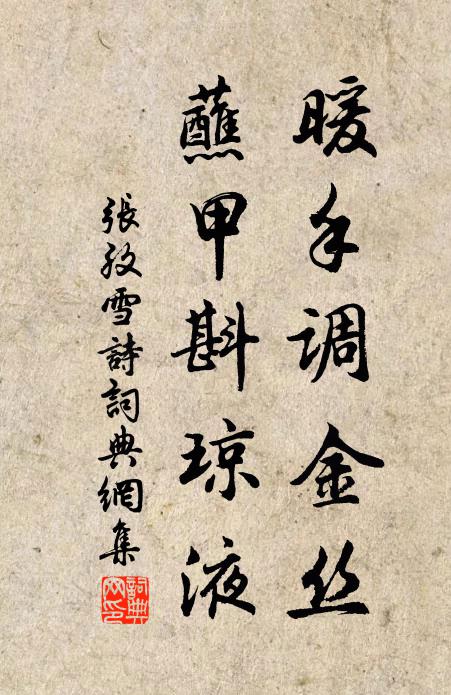 暖手调金丝
蘸甲斟琼液
張孜雪詩詞典網集
詞典
网印